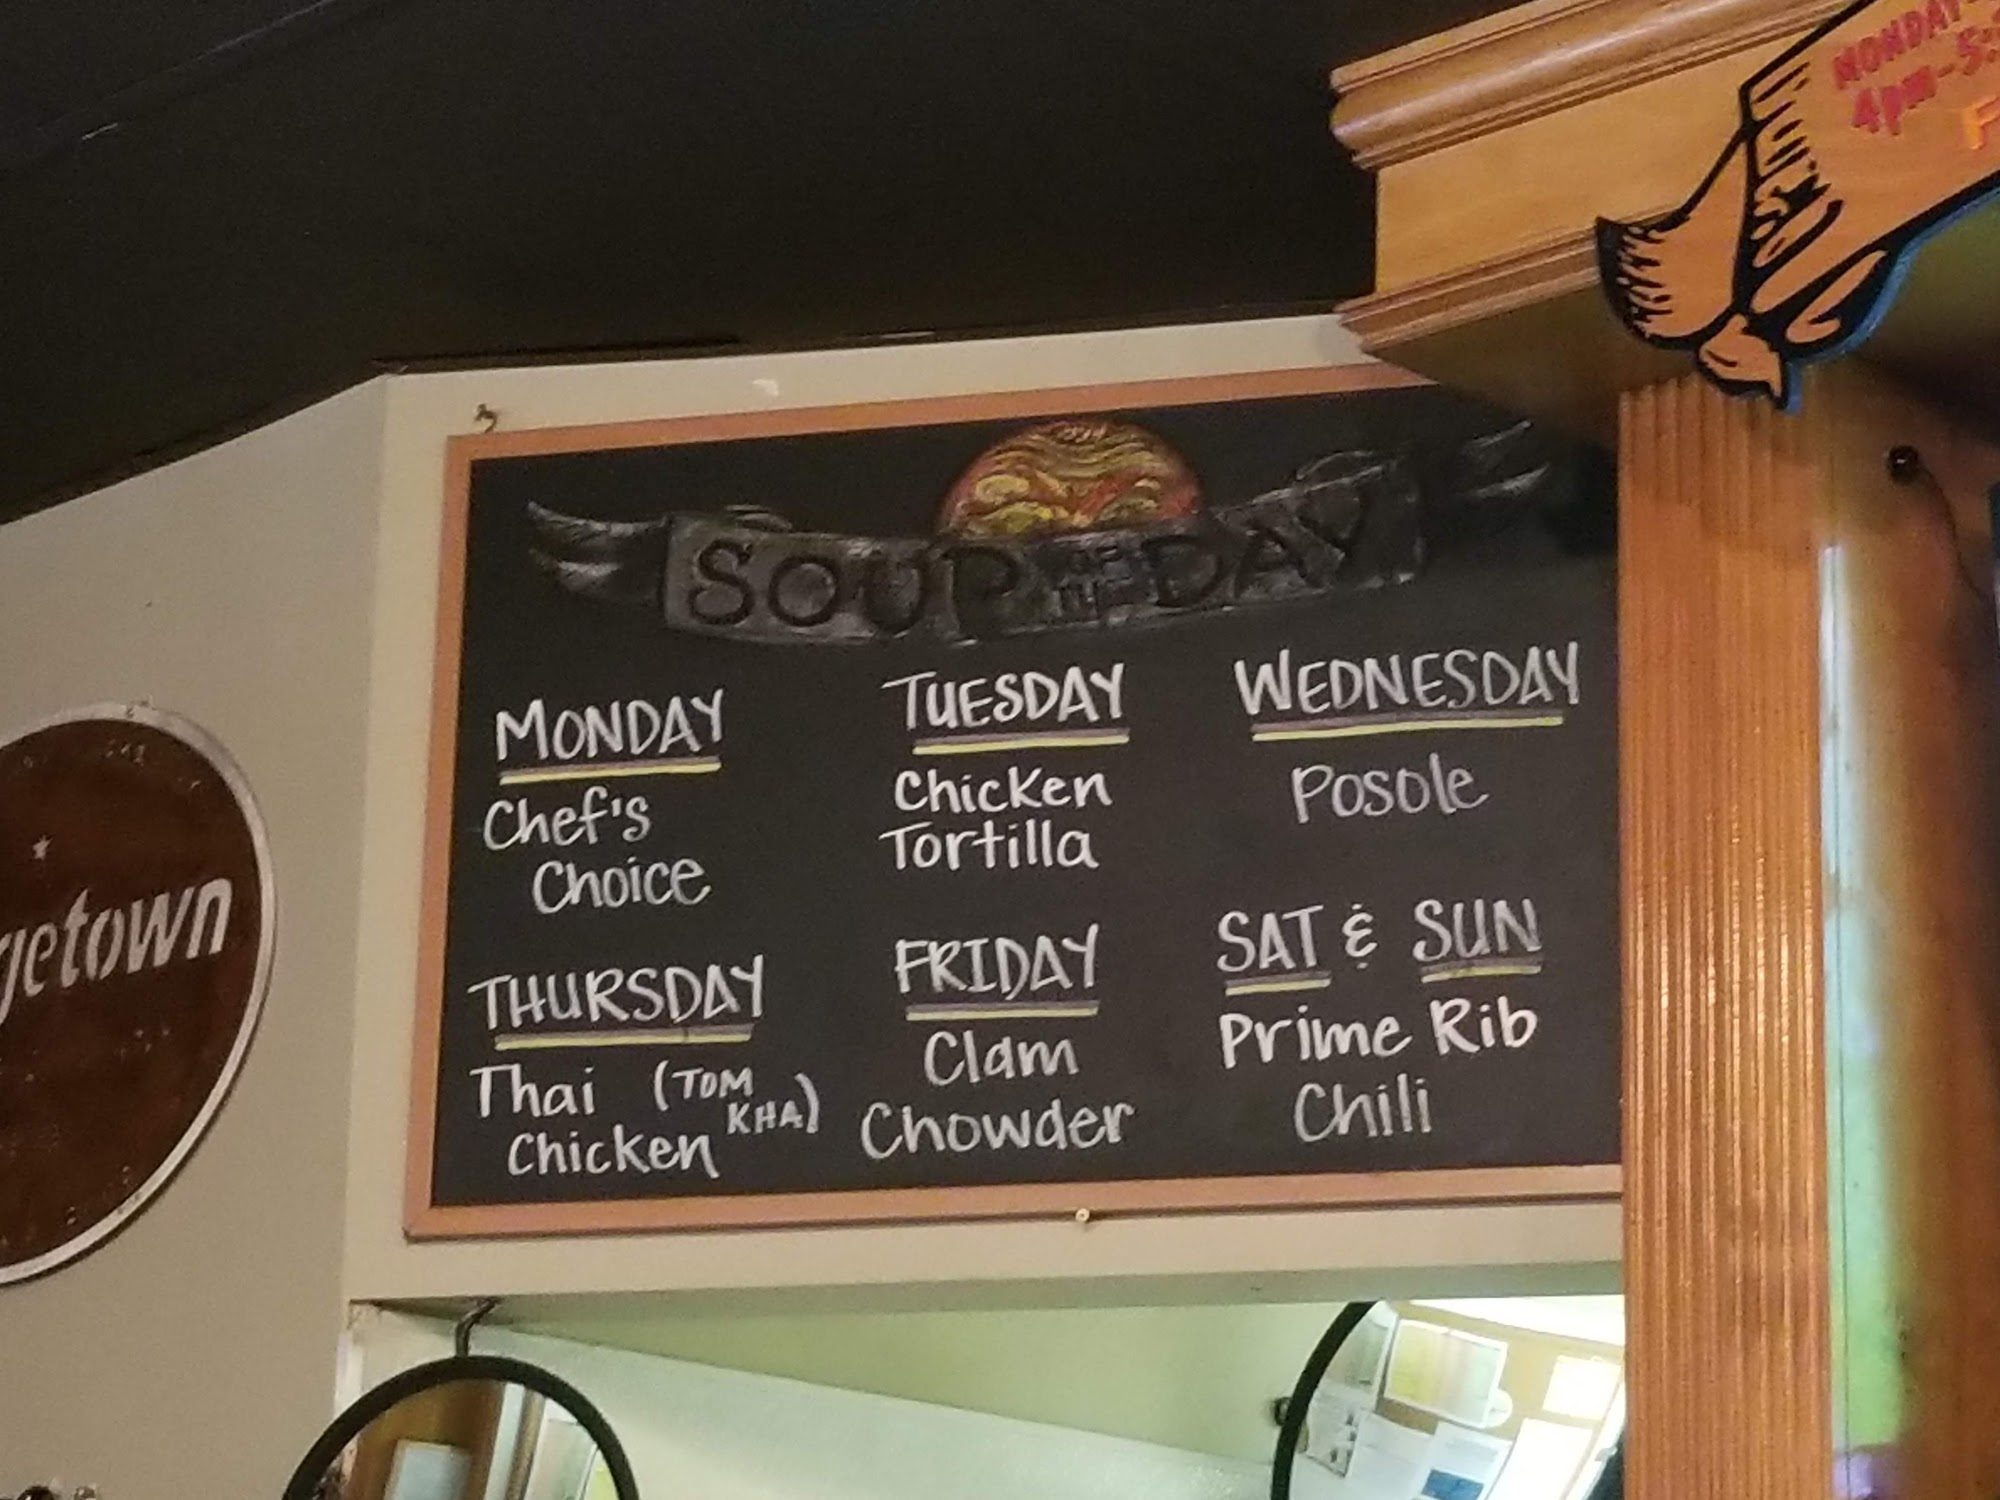 MONDAY
4pm-5:
SOUP OF THE DAY
MONDAY
Chef's
Choice
TUESDAY
Chicken
Tortilla
WEDNESDAY
Posole
THURSDAY
Thai (TOM
KHA)
Chicken
FRIDAY
Clam
Chowder
SAT & SUN
Prime Rib
Chili
getown